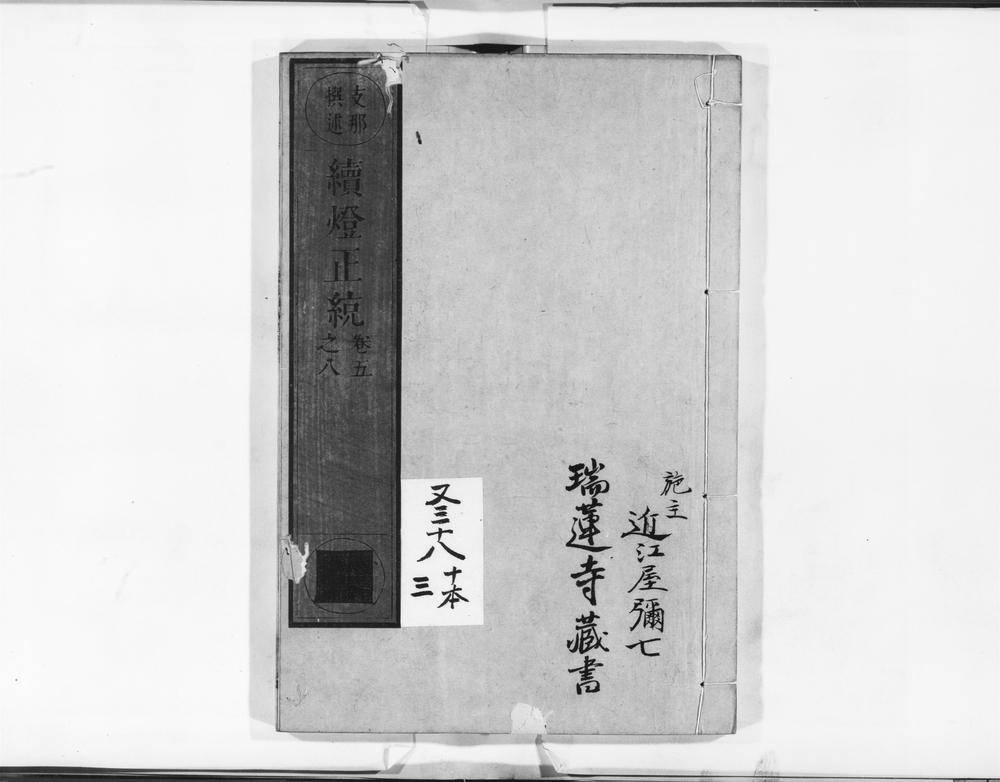 施主
近江屋彌七
瑞蓮寺藏書
又三十八
十本
三
支那
撰述
續燈正統
卷五
之八